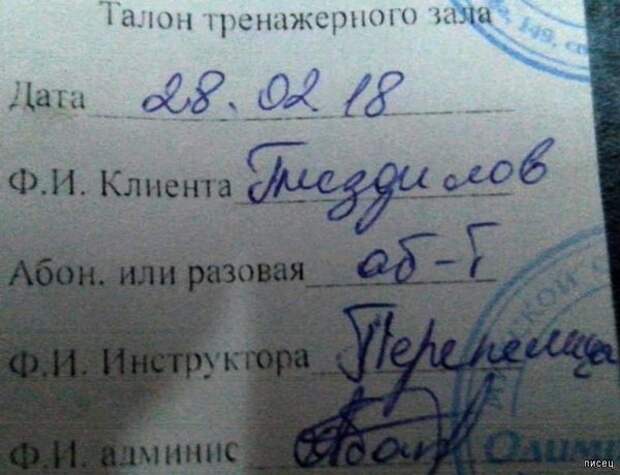 Талон тренажерного зала
149, с
Дата 28.02 18
Ф.И. Клиента Гнездилов
Абон. или разовая аб-Т
Ф.И. Инструктора Перепелица
Ф.И. админис
писец